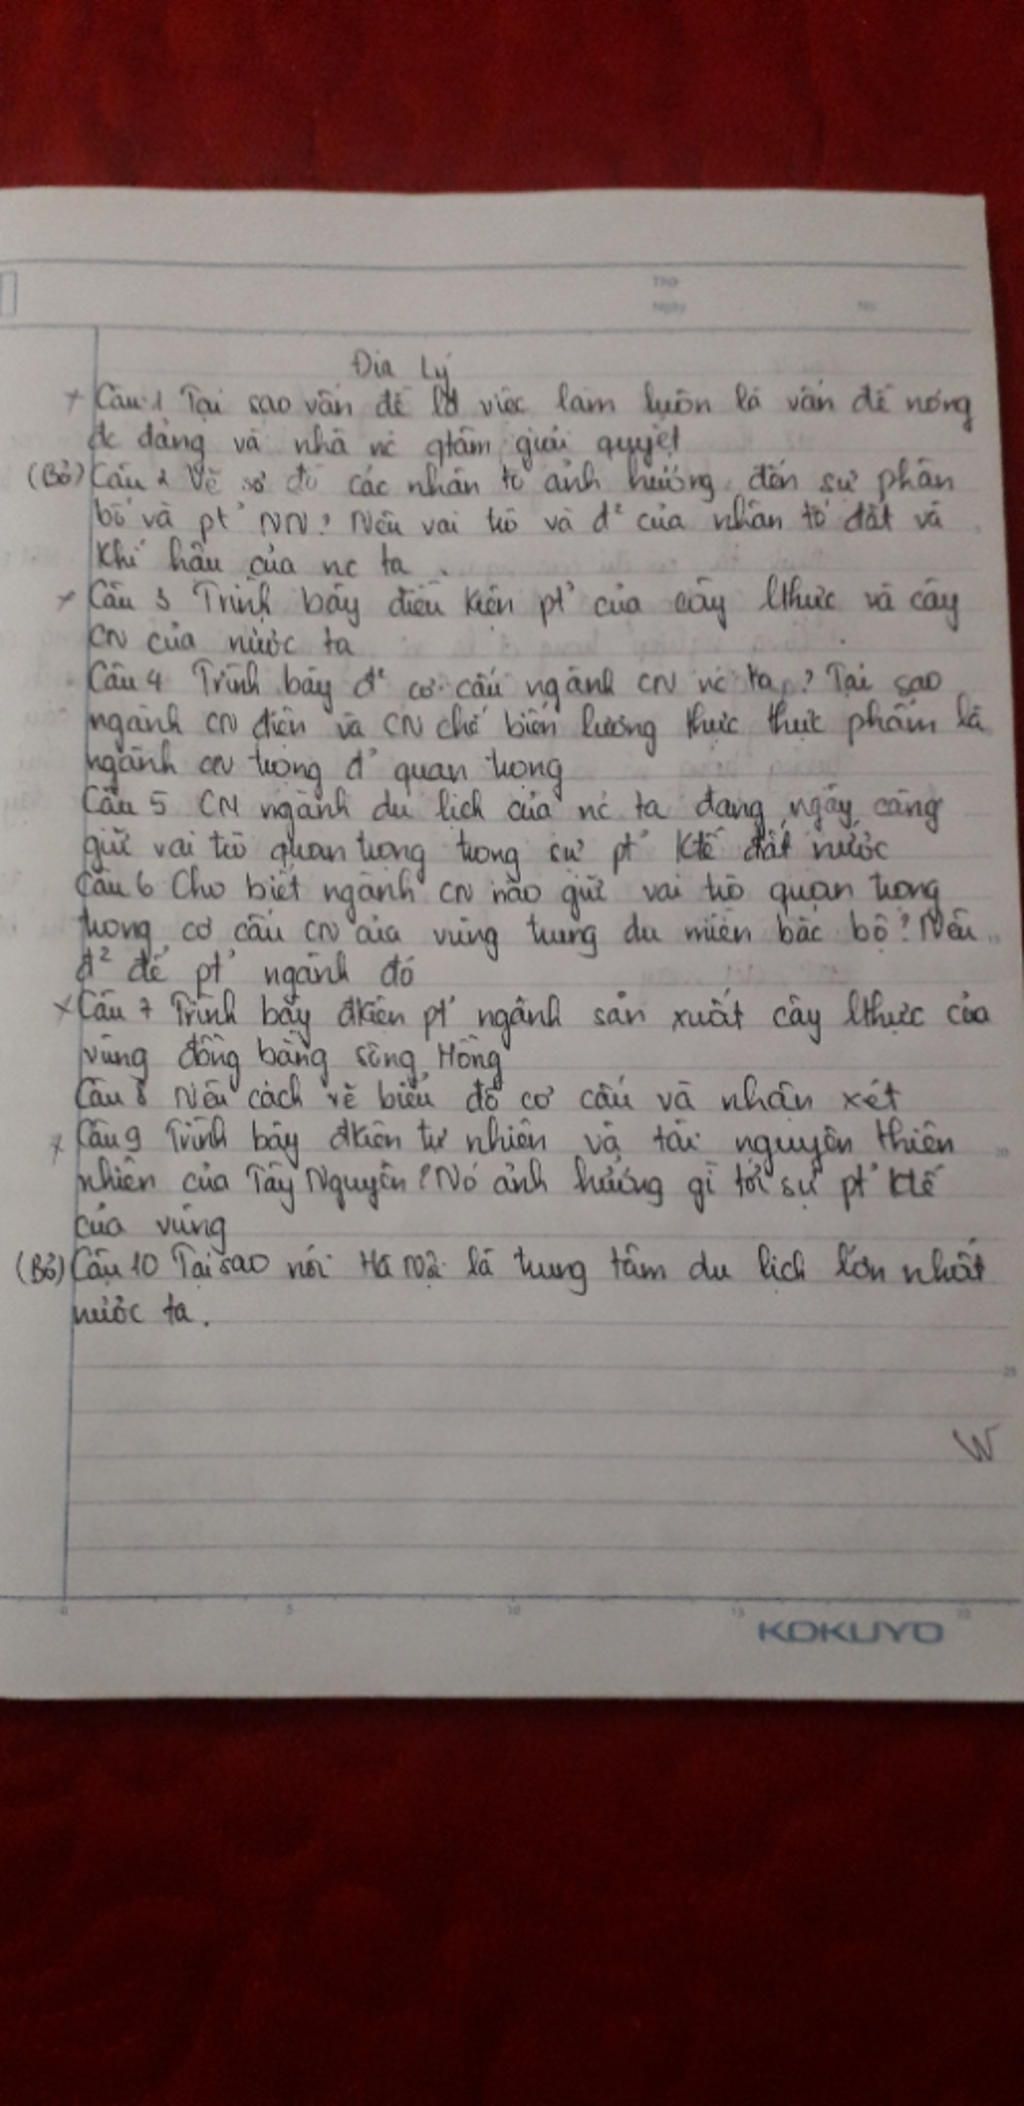 Thứ
Ngày
No
Địa Lý
+ Câu 1 Tại sao vấn đề việc làm luôn là vấn đề nóng
đc đảng và nhà nc qtâm giải quyết
(Bỏ) Câu 2 Vẽ sơ đồ các nhân tố ảnh hưởng đến sự phân
bố và pt' NN? Nêu vai trò và đ² của nhân tố đất và
khí hậu của nc ta.
+ Câu 3 Trình bày điều kiện pt' của cây lthực và cây
CN của nước ta
Câu 4 Trình bày đ² cơ cấu ngành CN nc ta? Tại sao
ngành CN điện và CN chế biến lương thực thực phẩm là
ngành CN trọng đ' quan trọng
Câu 5 CM ngành du lịch của nc ta đang ngày càng
giữ vai trò quan trọng trong sự pt' ktế đất nước
Câu 6 Cho biết ngành CN nào giữ vai trò quan trọng
trong cơ cấu CN của vùng trung du miền bắc bộ? Nêu
đ² để pt' ngành đó
x Câu 7 Trình bày đkiện pt' ngành sản xuất cây lthực của
vùng đồng bằng sông Hồng
Câu 8 Nêu cách vẽ biểu đồ cơ cấu và nhận xét
+ Câu 9 Trình bày đkiện tự nhiên và tài nguyên thiên
nhiên của Tây Nguyên? Nó ảnh hưởng gì tới sự pt' ktế
của vùng
(Bỏ) Câu 10 Tại sao nói Hà Nội là trung tâm du lịch lớn nhất
nước ta.
W
0 5 10 15 20
KOKUYO